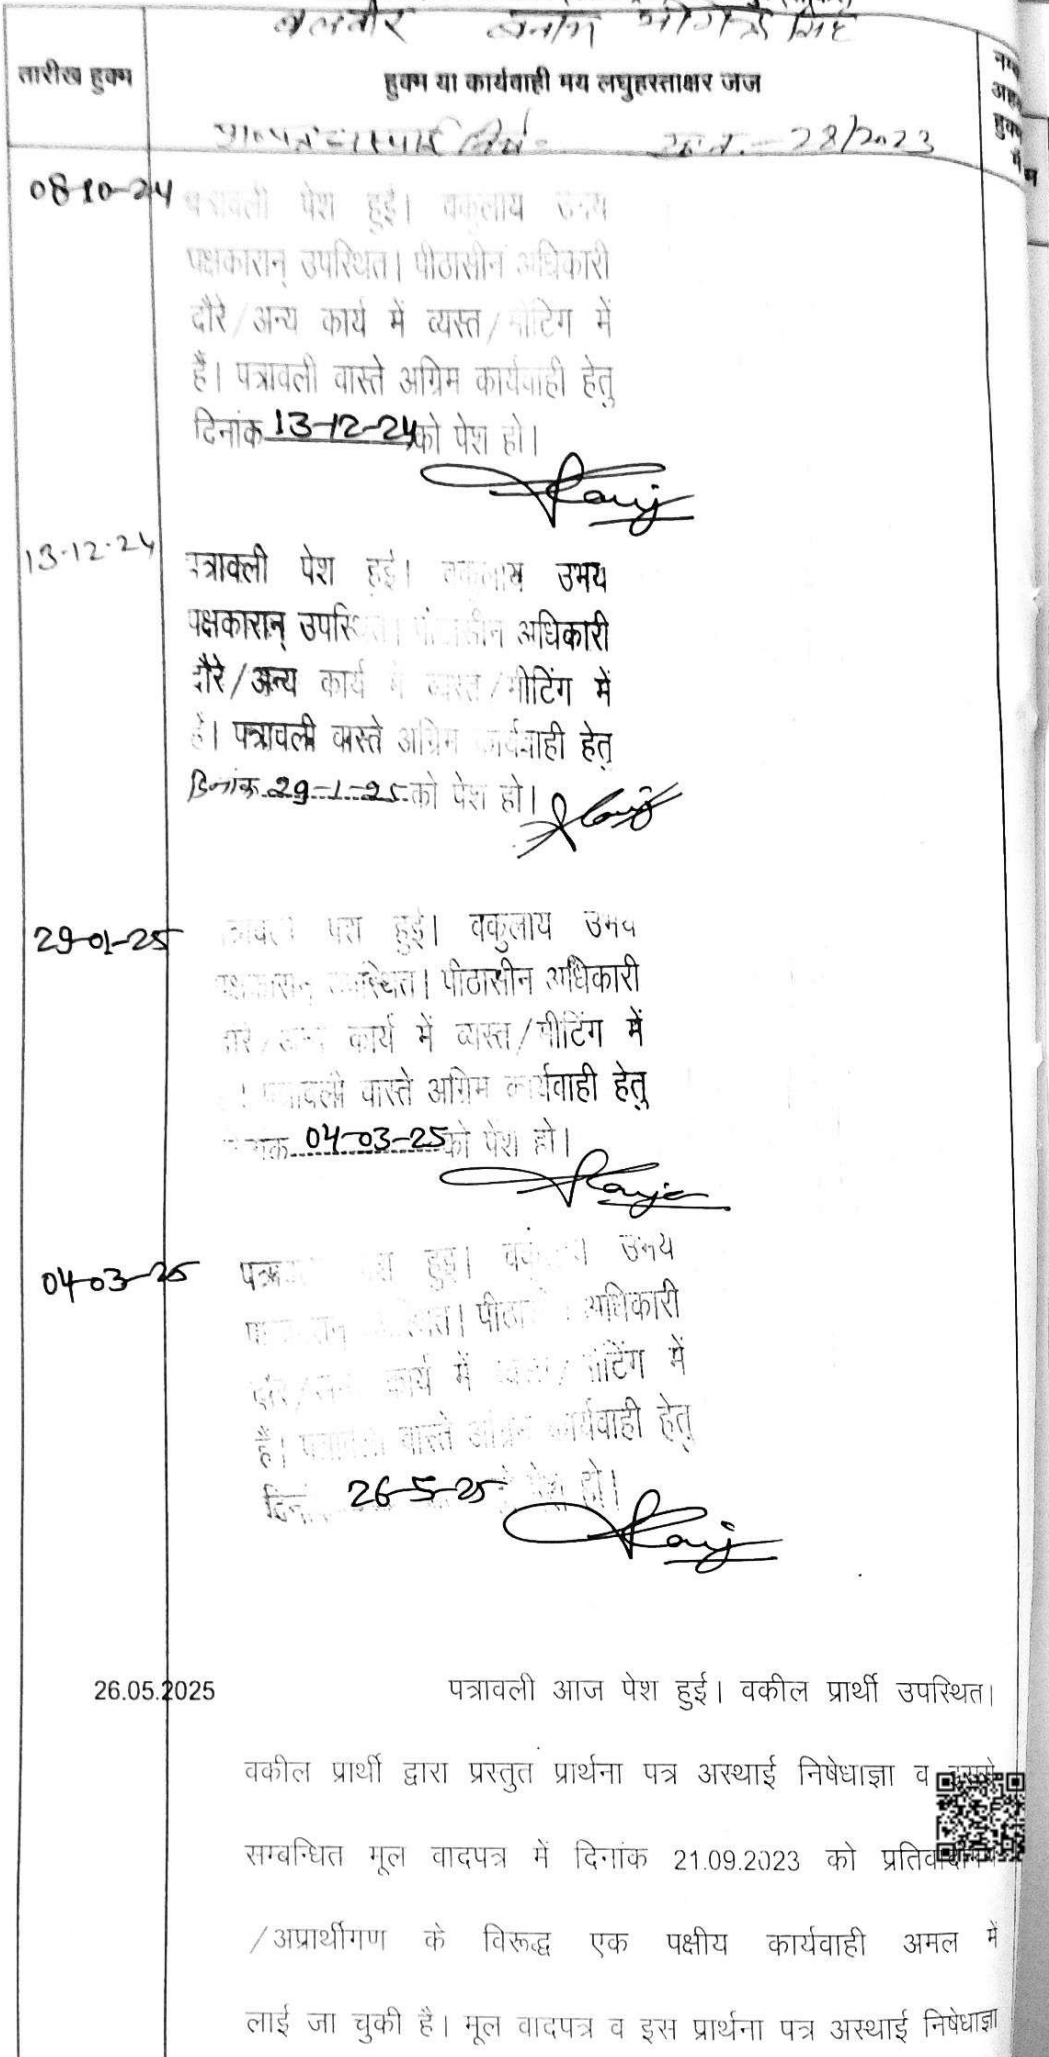 बलवीर बनाम जोगेन्द्र सिंह
तारीख हुक्म
हुक्म या कार्यवाही मय लघुहस्ताक्षर जज
28/2023
08-10-24
पत्रावली पेश हुई। वकुलाय उभय
पक्षकारान् उपस्थित। पीठासीन अधिकारी
दौरे/अन्य कार्य में व्यस्त/मीटिंग में
हैं। पत्रावली वास्ते अग्रिम कार्यवाही हेतु
दिनांक 13-12-24 को पेश हो।
13-12-24
पत्रावली पेश हुई। वकुलाय उभय
पक्षकारान् उपस्थित। पीठासीन अधिकारी
दौरे/अन्य कार्य में व्यस्त/मीटिंग में
हैं। पत्रावली वास्ते अग्रिम कार्यवाही हेतु
दिनांक 29-1-25 को पेश हो।
29-01-25
पत्रावली पेश हुई। वकुलाय उभय
पक्षकारान् उपस्थित। पीठासीन अधिकारी
दौरे/अन्य कार्य में व्यस्त/मीटिंग में
पत्रावली वास्ते अग्रिम कार्यवाही हेतु
दिनांक 04-03-25 को पेश हो।
04-03-25
पत्रावली पेश हुई। वकुलाय उभय
पक्षकारान् उपस्थित। पीठासीन अधिकारी
दौरे/अन्य कार्य में व्यस्त/मीटिंग में
हैं। पत्रावली वास्ते अग्रिम कार्यवाही हेतु
दिनांक 26-5-25 को पेश हो।
26.05.2025
पत्रावली आज पेश हुई। वकील प्रार्थी उपस्थित।
वकील प्रार्थी द्वारा प्रस्तुत प्रार्थना पत्र अस्थाई निषेधाज्ञा व
सम्बन्धित मूल वादपत्र में दिनांक 21.09.2023 को
/अप्रार्थीगण के विरूद्ध एक पक्षीय कार्यवाही अमल में
लाई जा चुकी है। मूल वादपत्र व इस प्रार्थना पत्र अस्थाई निषेधाज्ञा